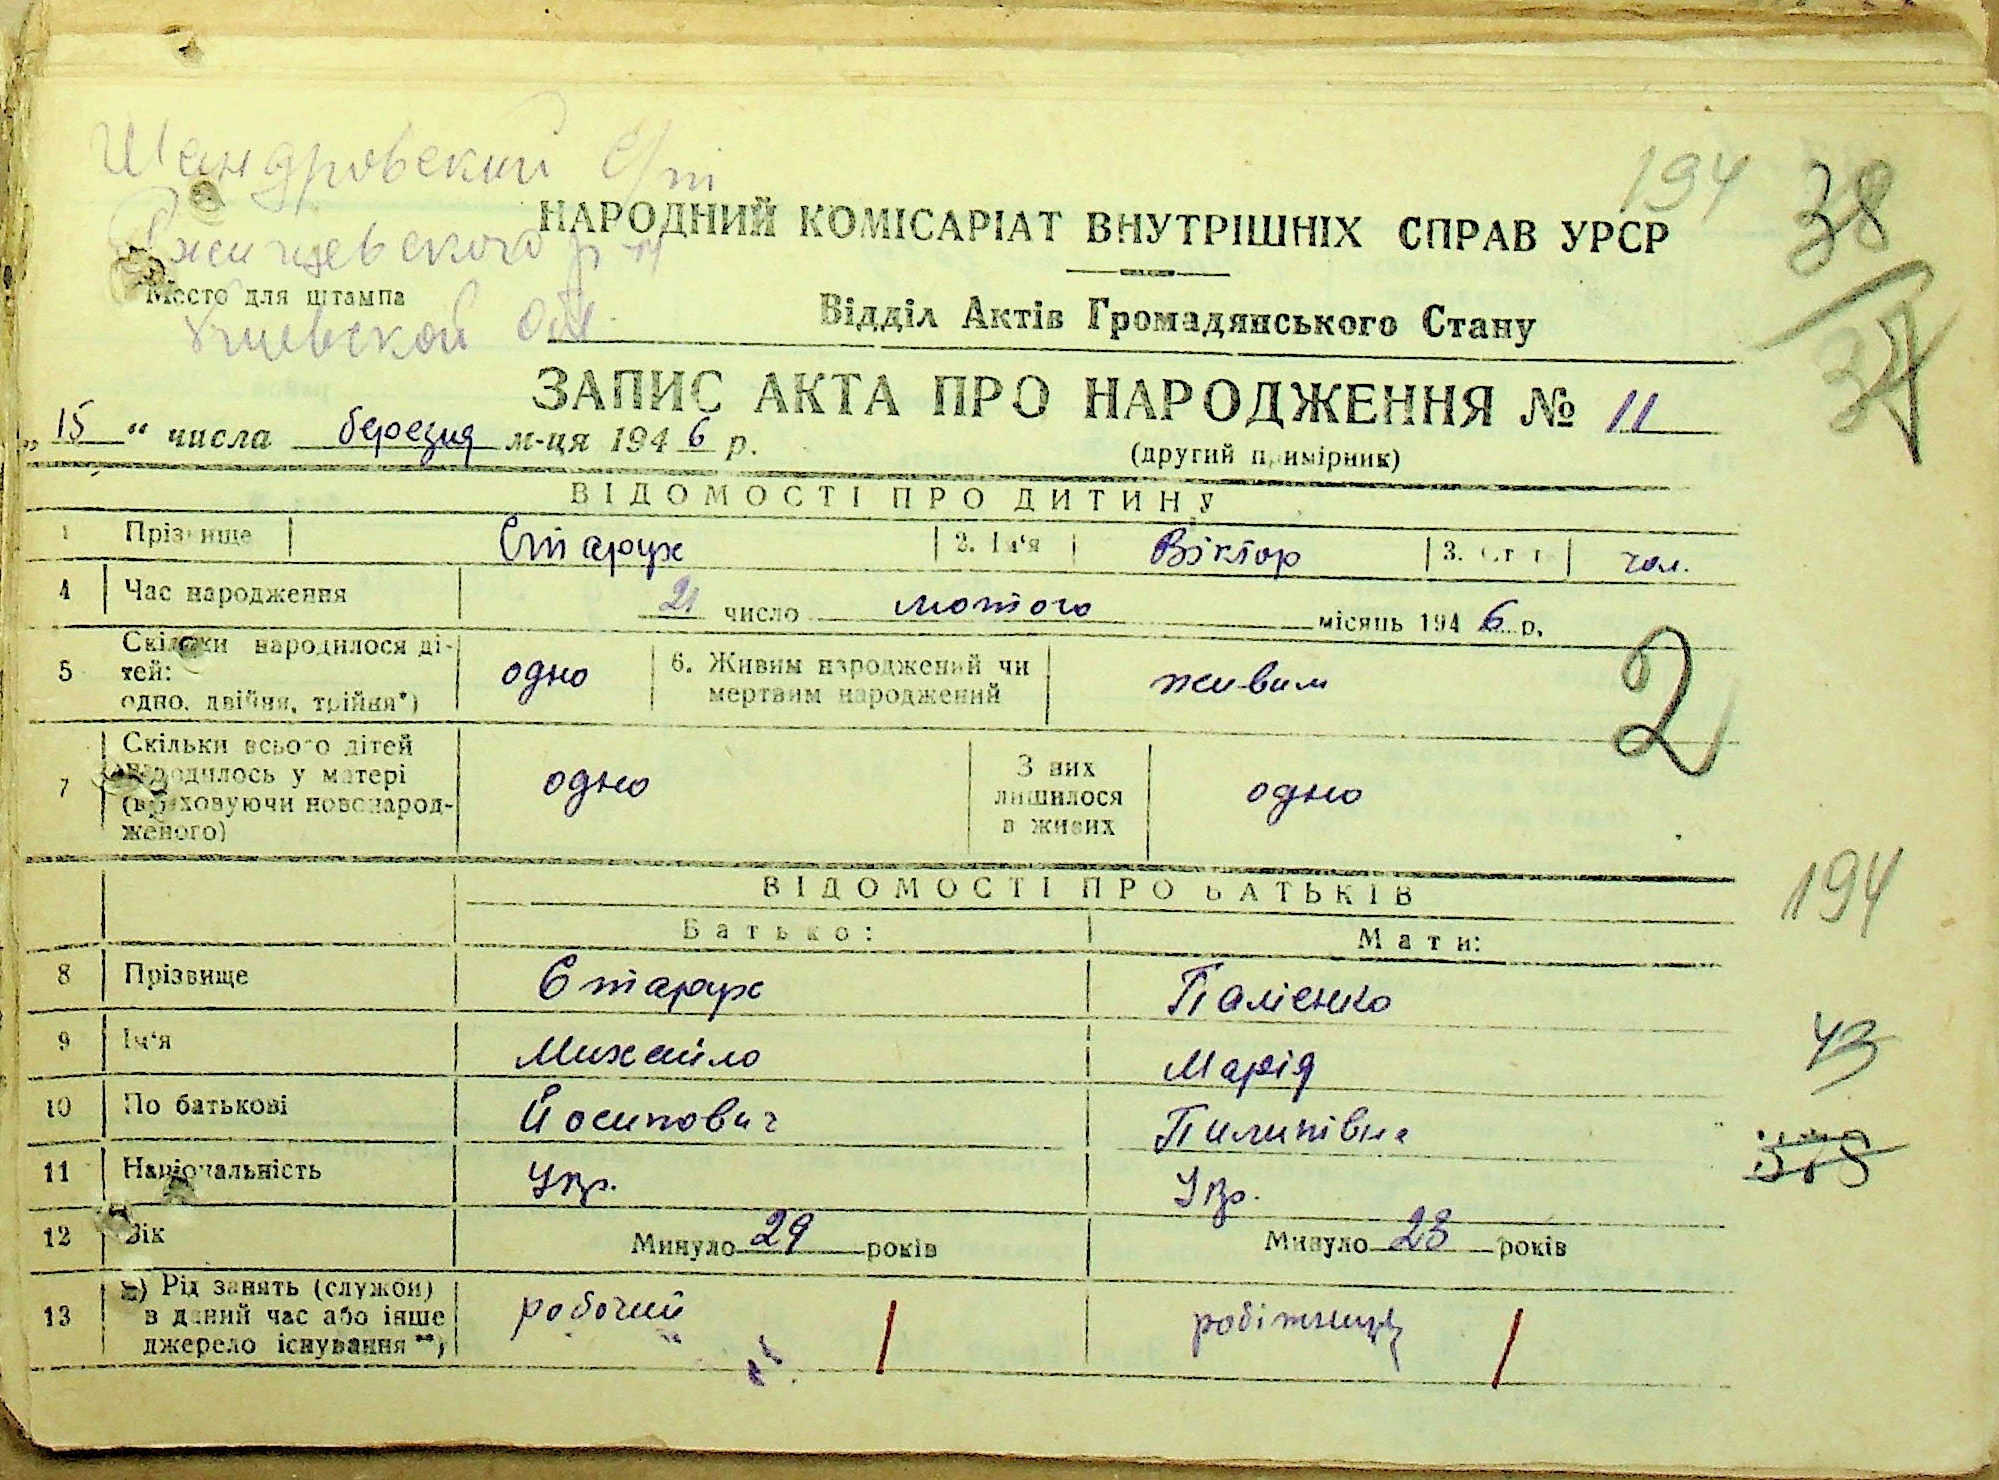 Шандровский с/т
194 38
НАРОДНИЙ КОМІСАРІАТ ВНУТРІШНІХ СПРАВ УРСР
Ржищевского р-н
Место для штампа
Відділ Актів Громадянського Стану
Киевской обл.
37
ЗАПИС АКТА ПРО НАРОДЖЕННЯ № 11
„ 15 “ числа березня м-ця 1946 р.
(другий примірник)
ВІДОМОСТІ ПРО ДИТИНУ
1 Прізвище Старух 2. Ім‘я Віктор 3. чол.
4 Час народження 21 число лютого місяць 1946 р.
5 Скільки народилося ді-
тей:
одно, двійня, трійня*)
одно
6. Живим народжений чи
мертвим народжений
живим
2
7 Скільки всього дітей
народилось у матері
(враховуючи новонарод-
женого)
одно
З них
лишилося
в живих
одно
ВІДОМОСТІ ПРО БАТЬКІВ
194
Батько: Мати:
8 Прізвище Старух Палієнко
9 Ім‘я Михайло Марія
43
10 По батькові Йосипович Пилипівна
11 Національність Укр. Укр.
12 Вік Минуло 29 років Минуло 28 років
13 а) Рід занять (служби)
в даний час або інше
джерело існування**)
робочий робітниця